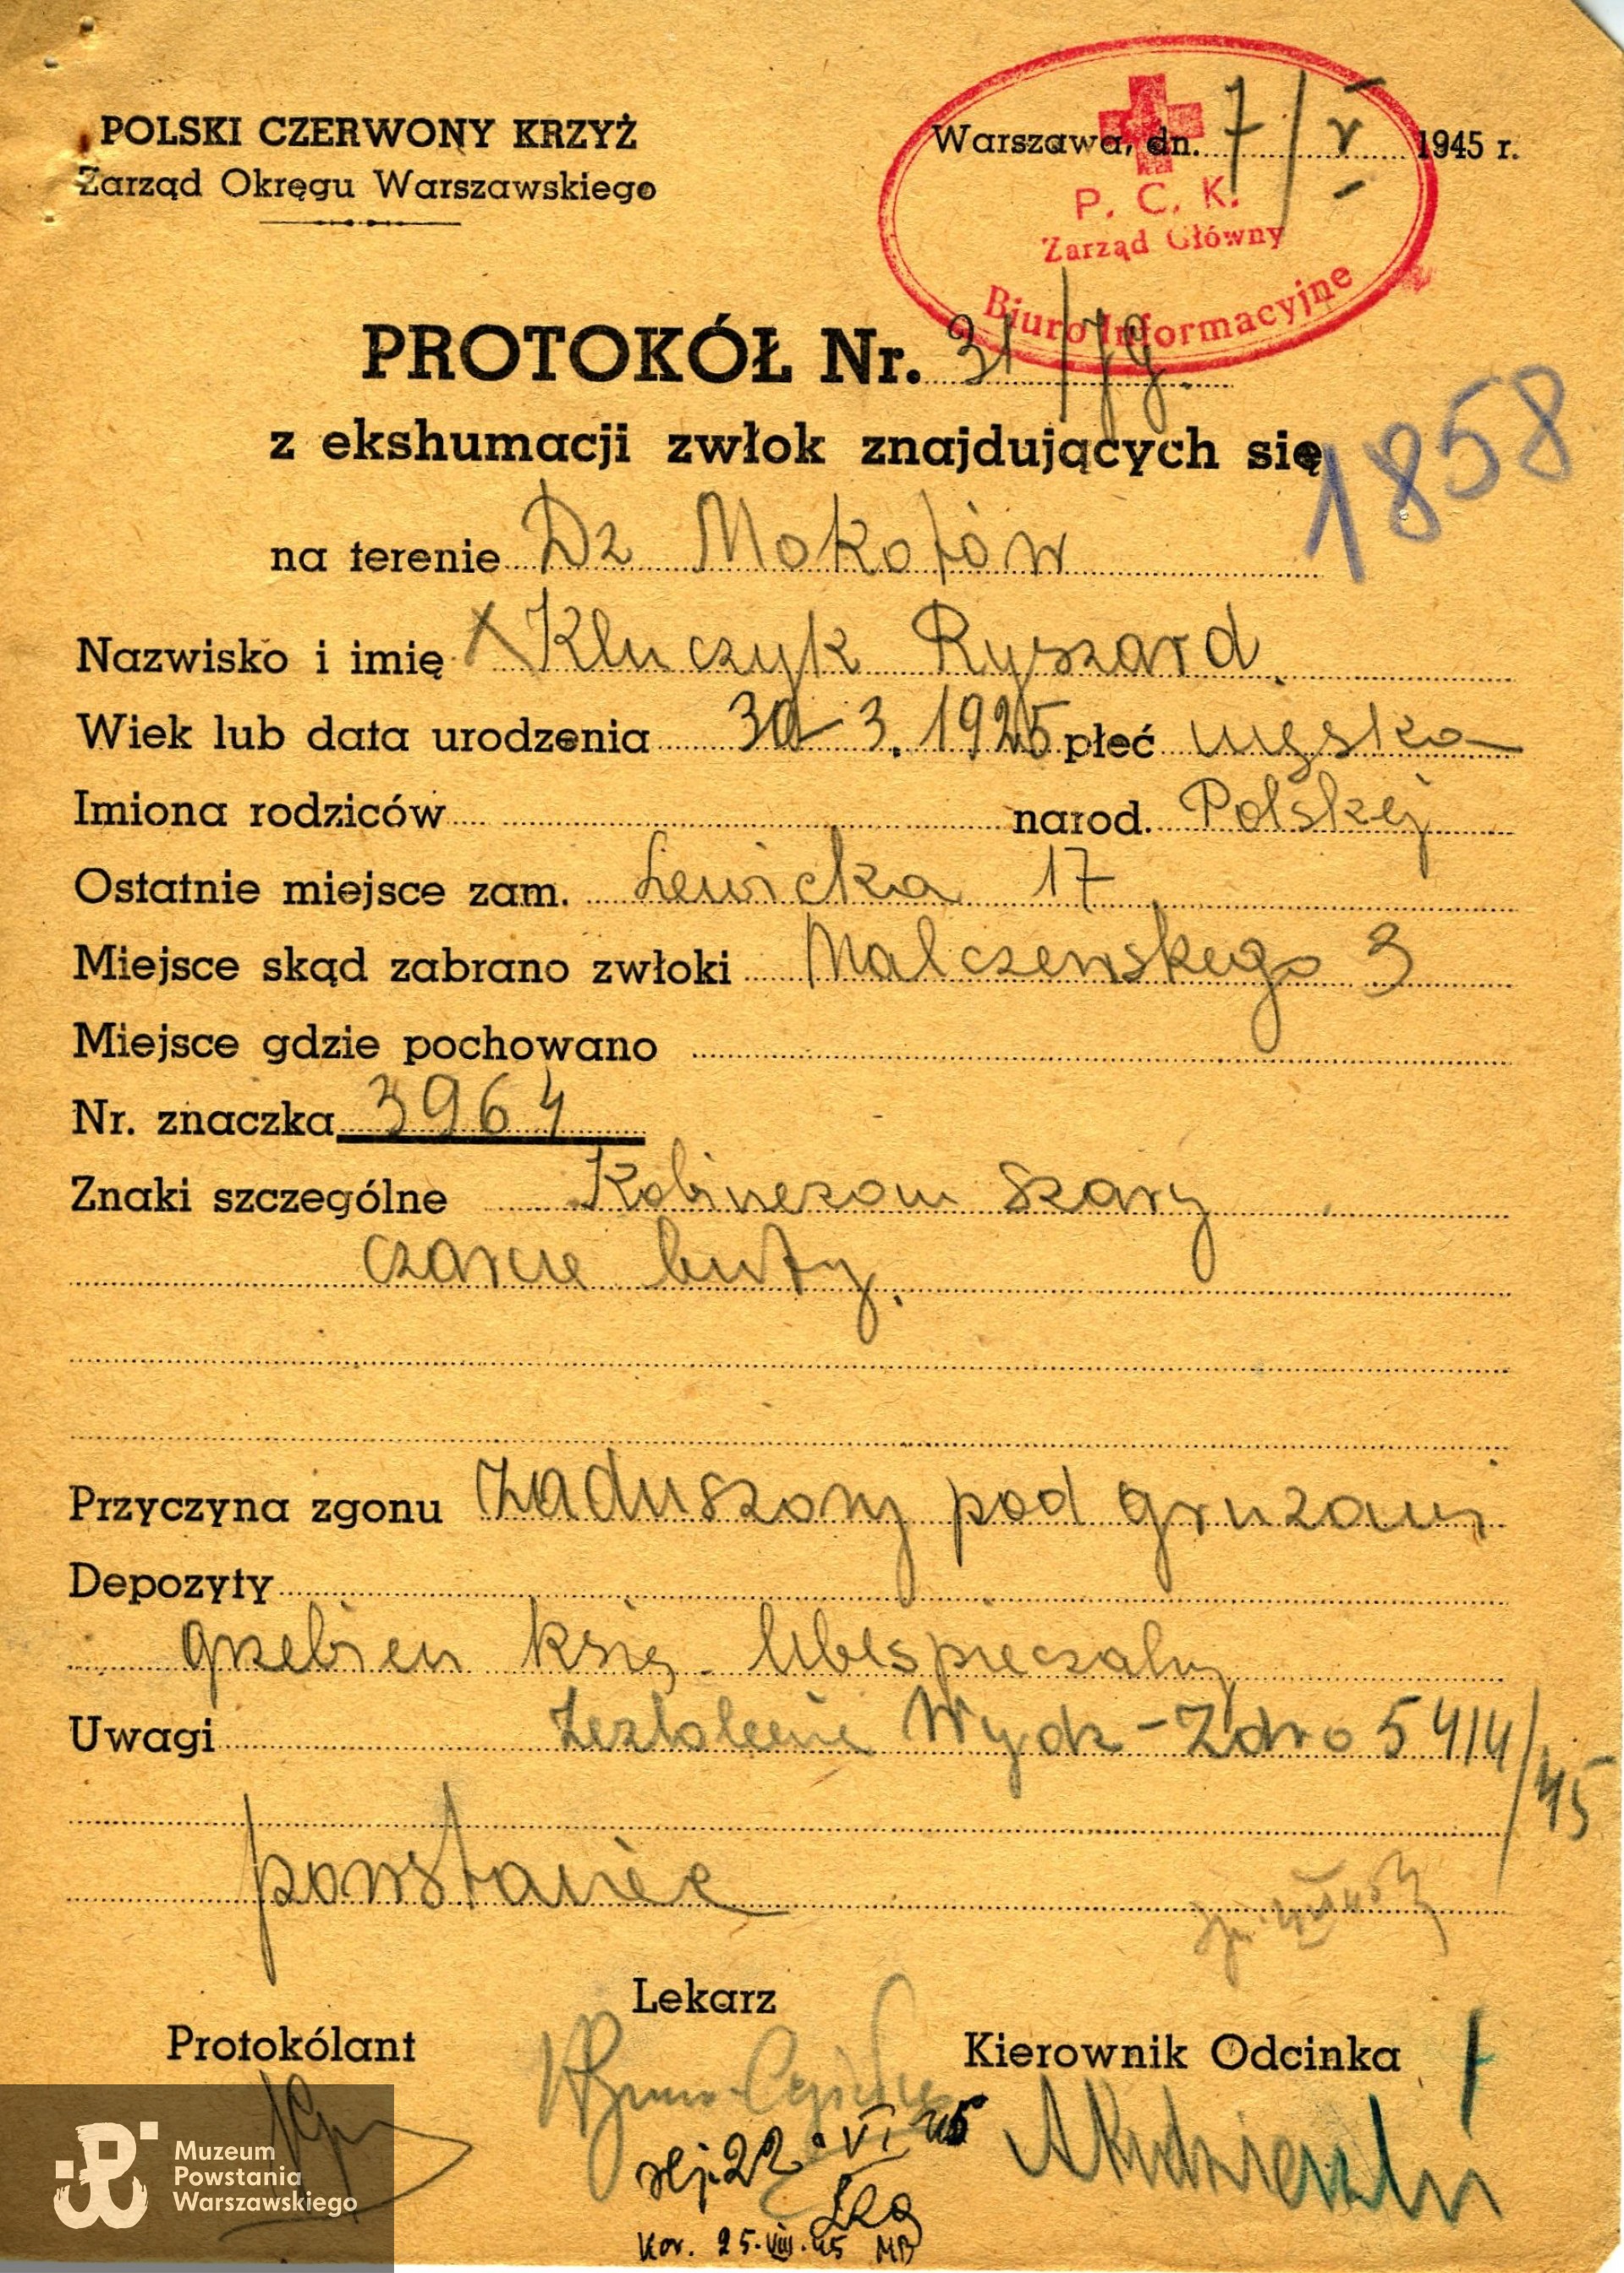 POLSKI CZERWONY KRZYŻ
Zarząd Okręgu Warszawskiego
Warszawa, dn. 7/V 1945 r.
P. C. K.
Zarząd Główny
Biuro Informacyjne
PROTOKÓŁ Nr. 31/79
z ekshumacji zwłok znajdujących się
1858
na terenie Dz Mokotów
Nazwisko i imię x Kluczyk Ryszard
Wiek lub data urodzenia 30-3.1925 płeć męska
Imiona rodziców narod. Polskej
Ostatnie miejsce zam. Lewicka 17
Miejsce skąd zabrano zwłoki Malczewskiego 3
Miejsce gdzie pochowano
Nr. znaczka 3964
Znaki szczególne Kobinezom szary
czarne buty.
Przyczyna zgonu zaduszony pod gruzami
Depozyty
grzebien księ. Ubespieczalny
Uwagi Zezwolenie Wydz-Zdro 5414/45
powstaniec
Lekarz
Protokólant
Kierownik Odcinka
rej. 22.VI 45
kor. 25.VIII.45 MB
Muzeum
Powstania
Warszawskiego